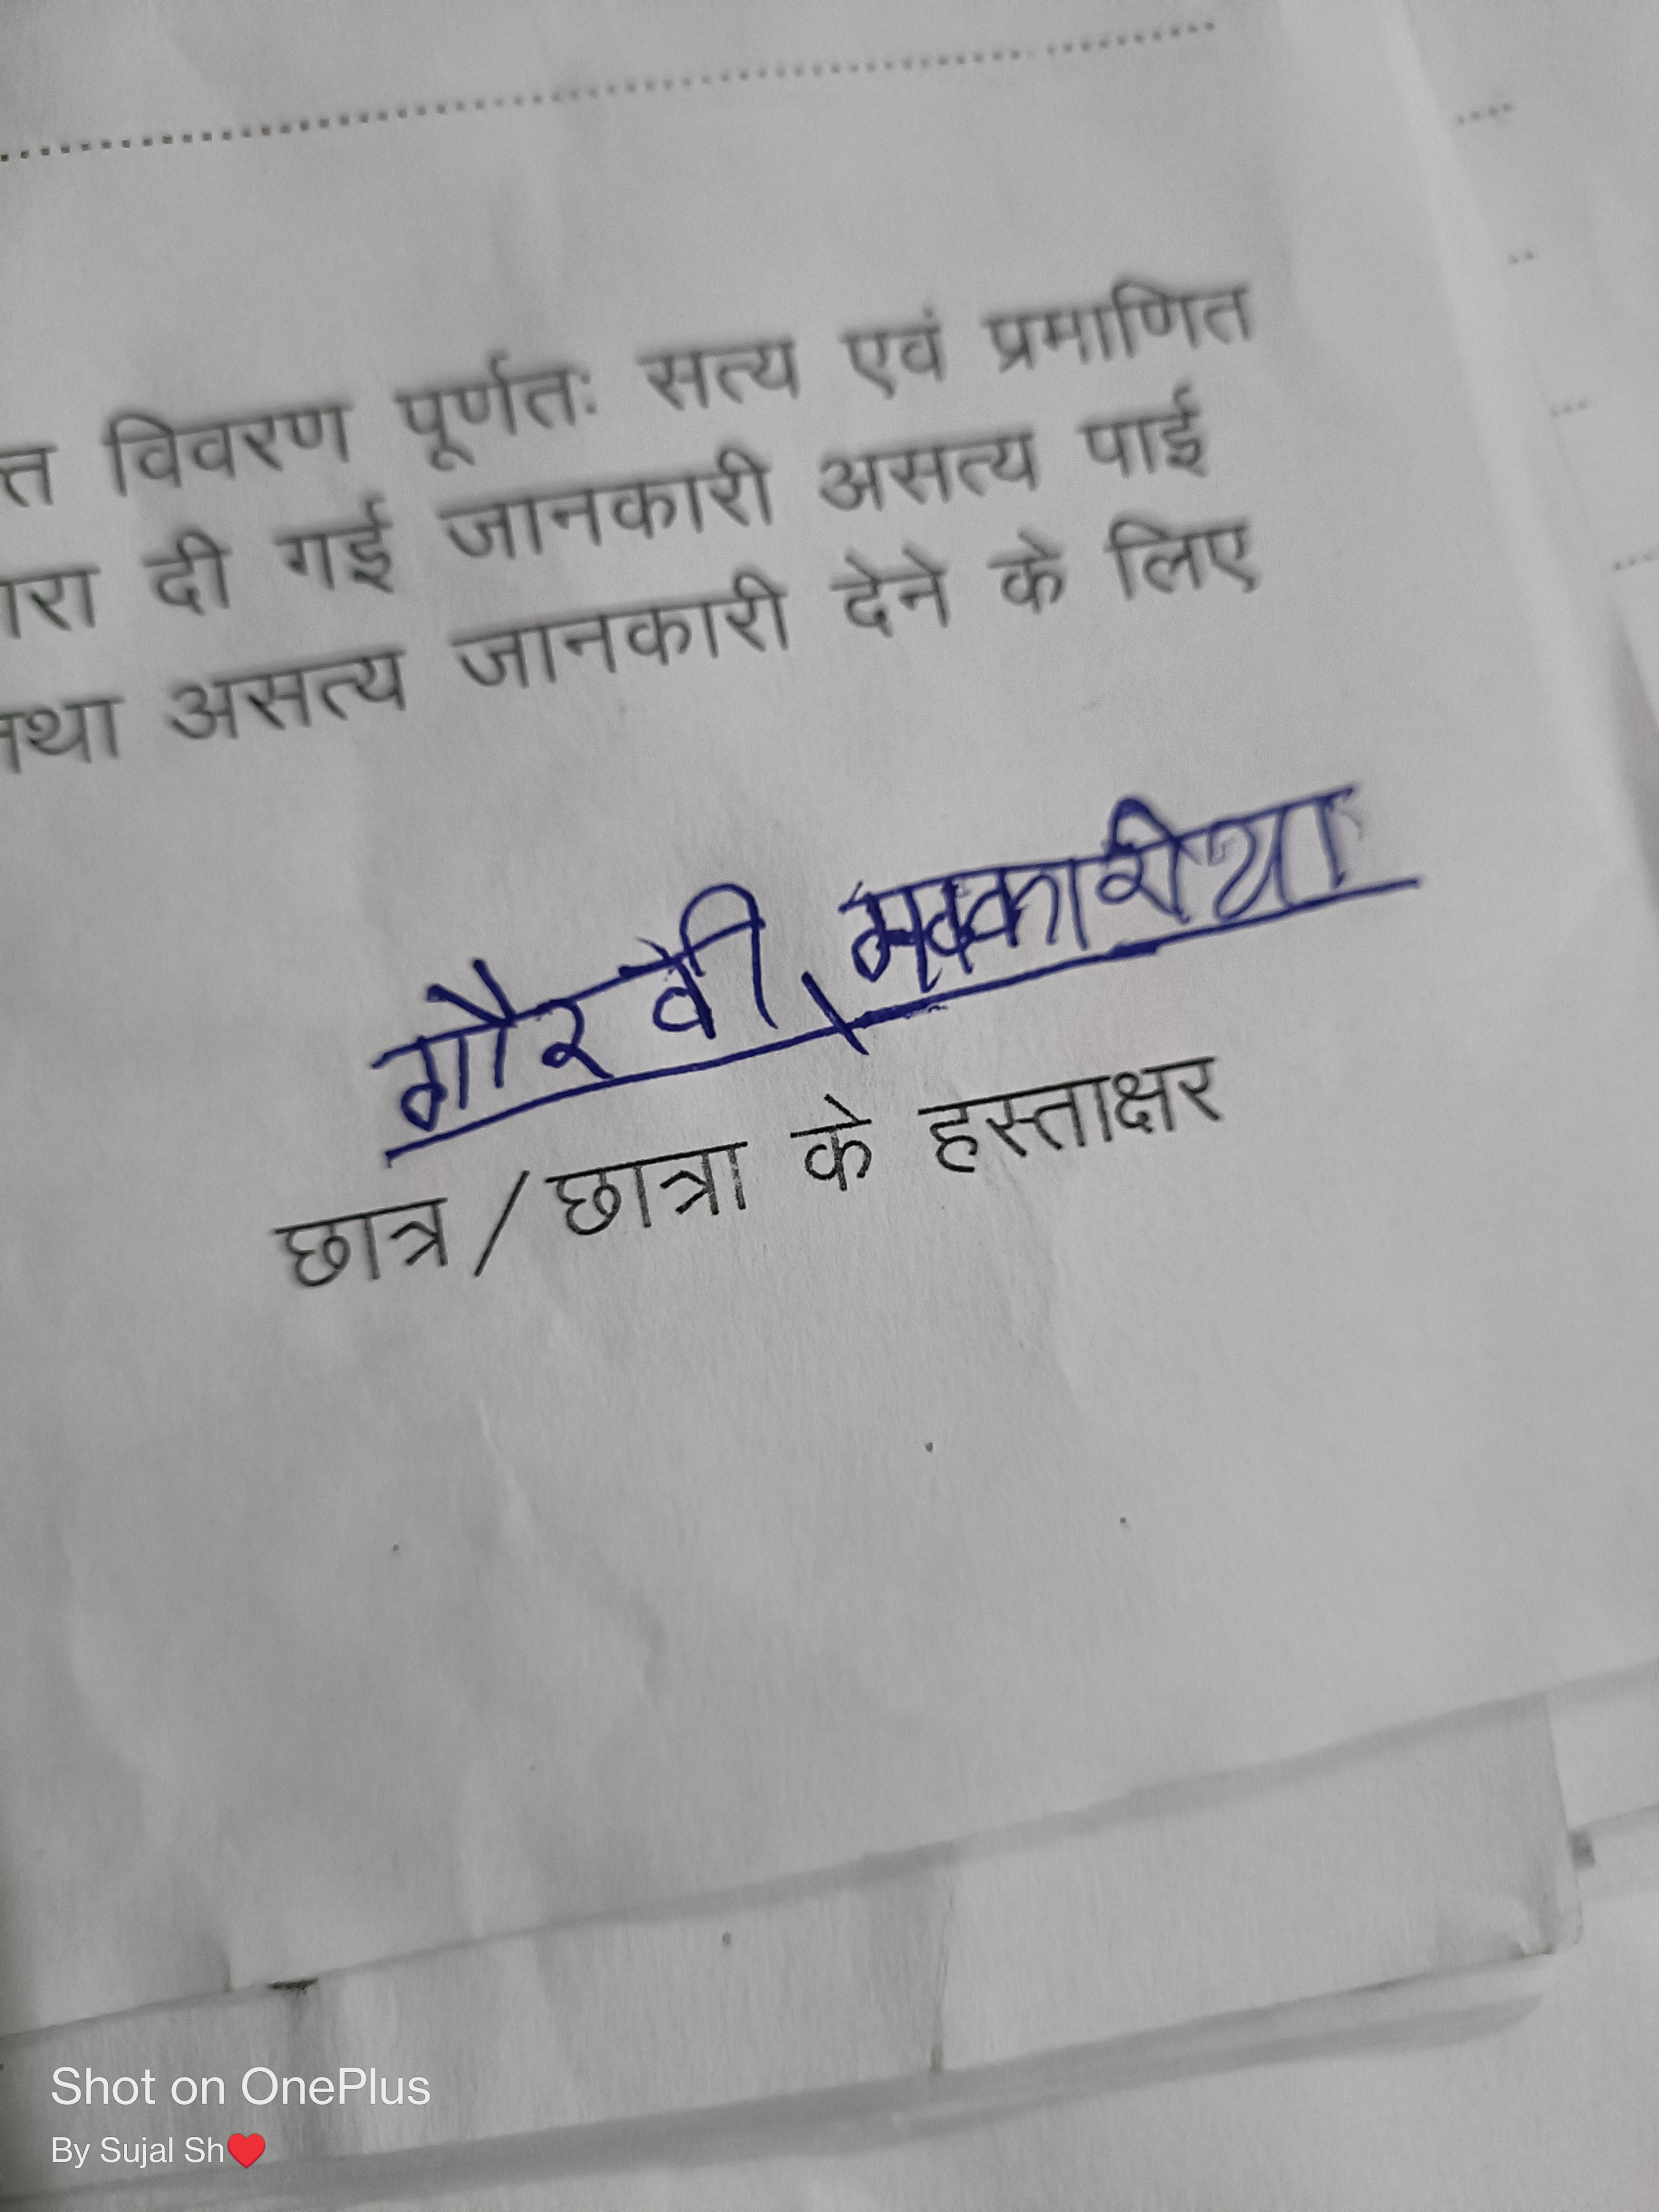 विवरण पूर्णतः सत्य एवं प्रमाणित
दी गई जानकारी असत्य पाई
तथा असत्य जानकारी देने के लिए
गौरवी
छात्र/छात्रा के हस्ताक्षर
Shot on OnePlus
By Sujal Sh❤️